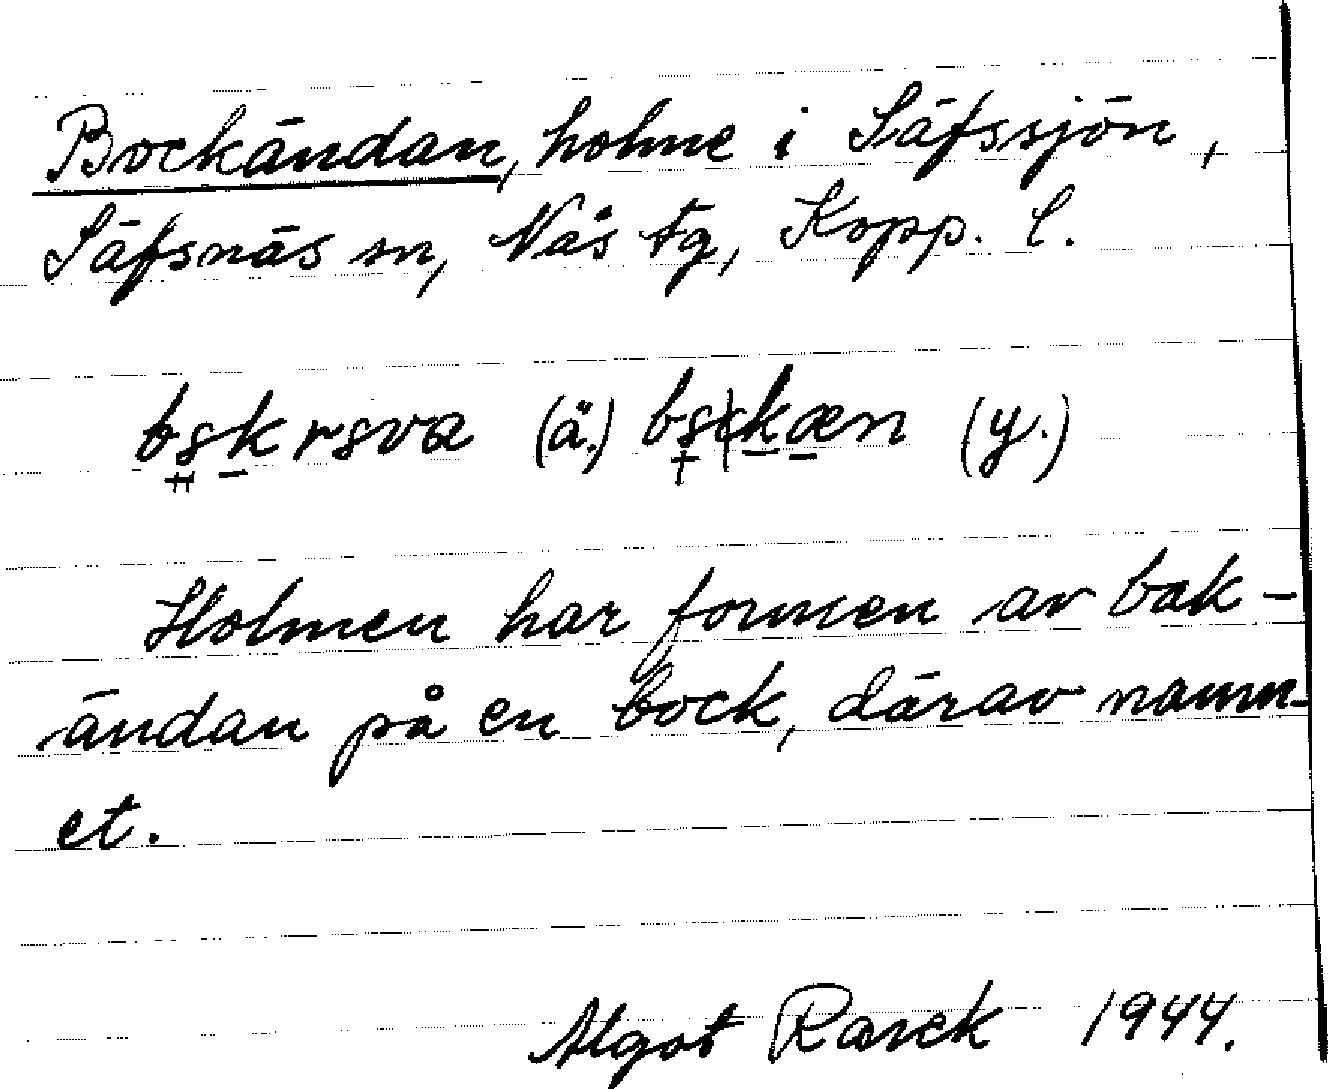 Bockändan, holme i Säfssjön,
Säfsnäs sn, Nås tg, Kopp. l.
bskrsva (ä.) bskæn (y.)
Holmen har formen av bak-
ändan på en bock, därav namn-
et.
Algot Rarek 1944.